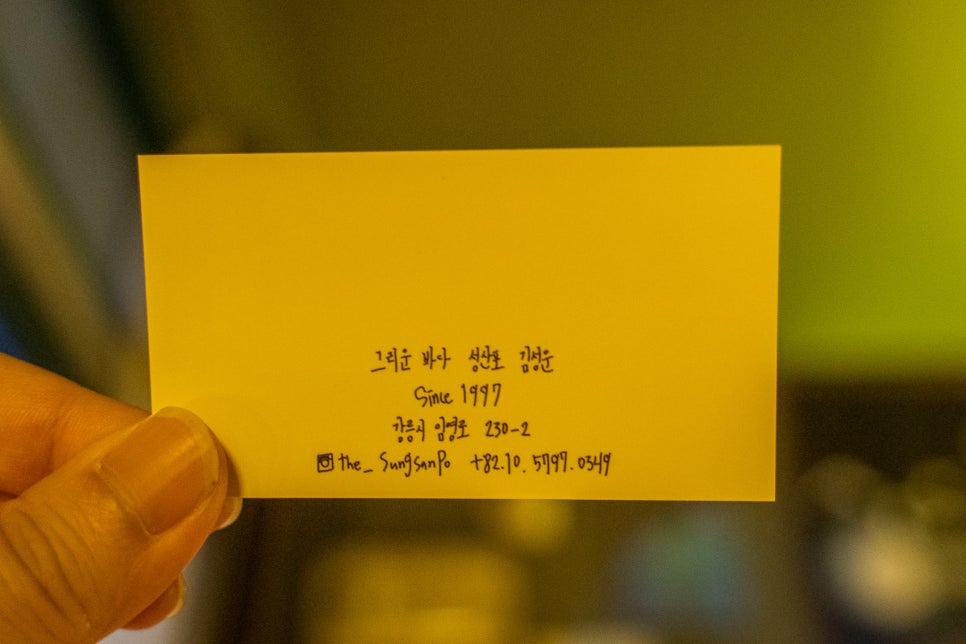 그리운 바다 성산포 김성운
Since 1997
강릉시 임영로 230-2
the_sungsanpo +82.10.5797.0349